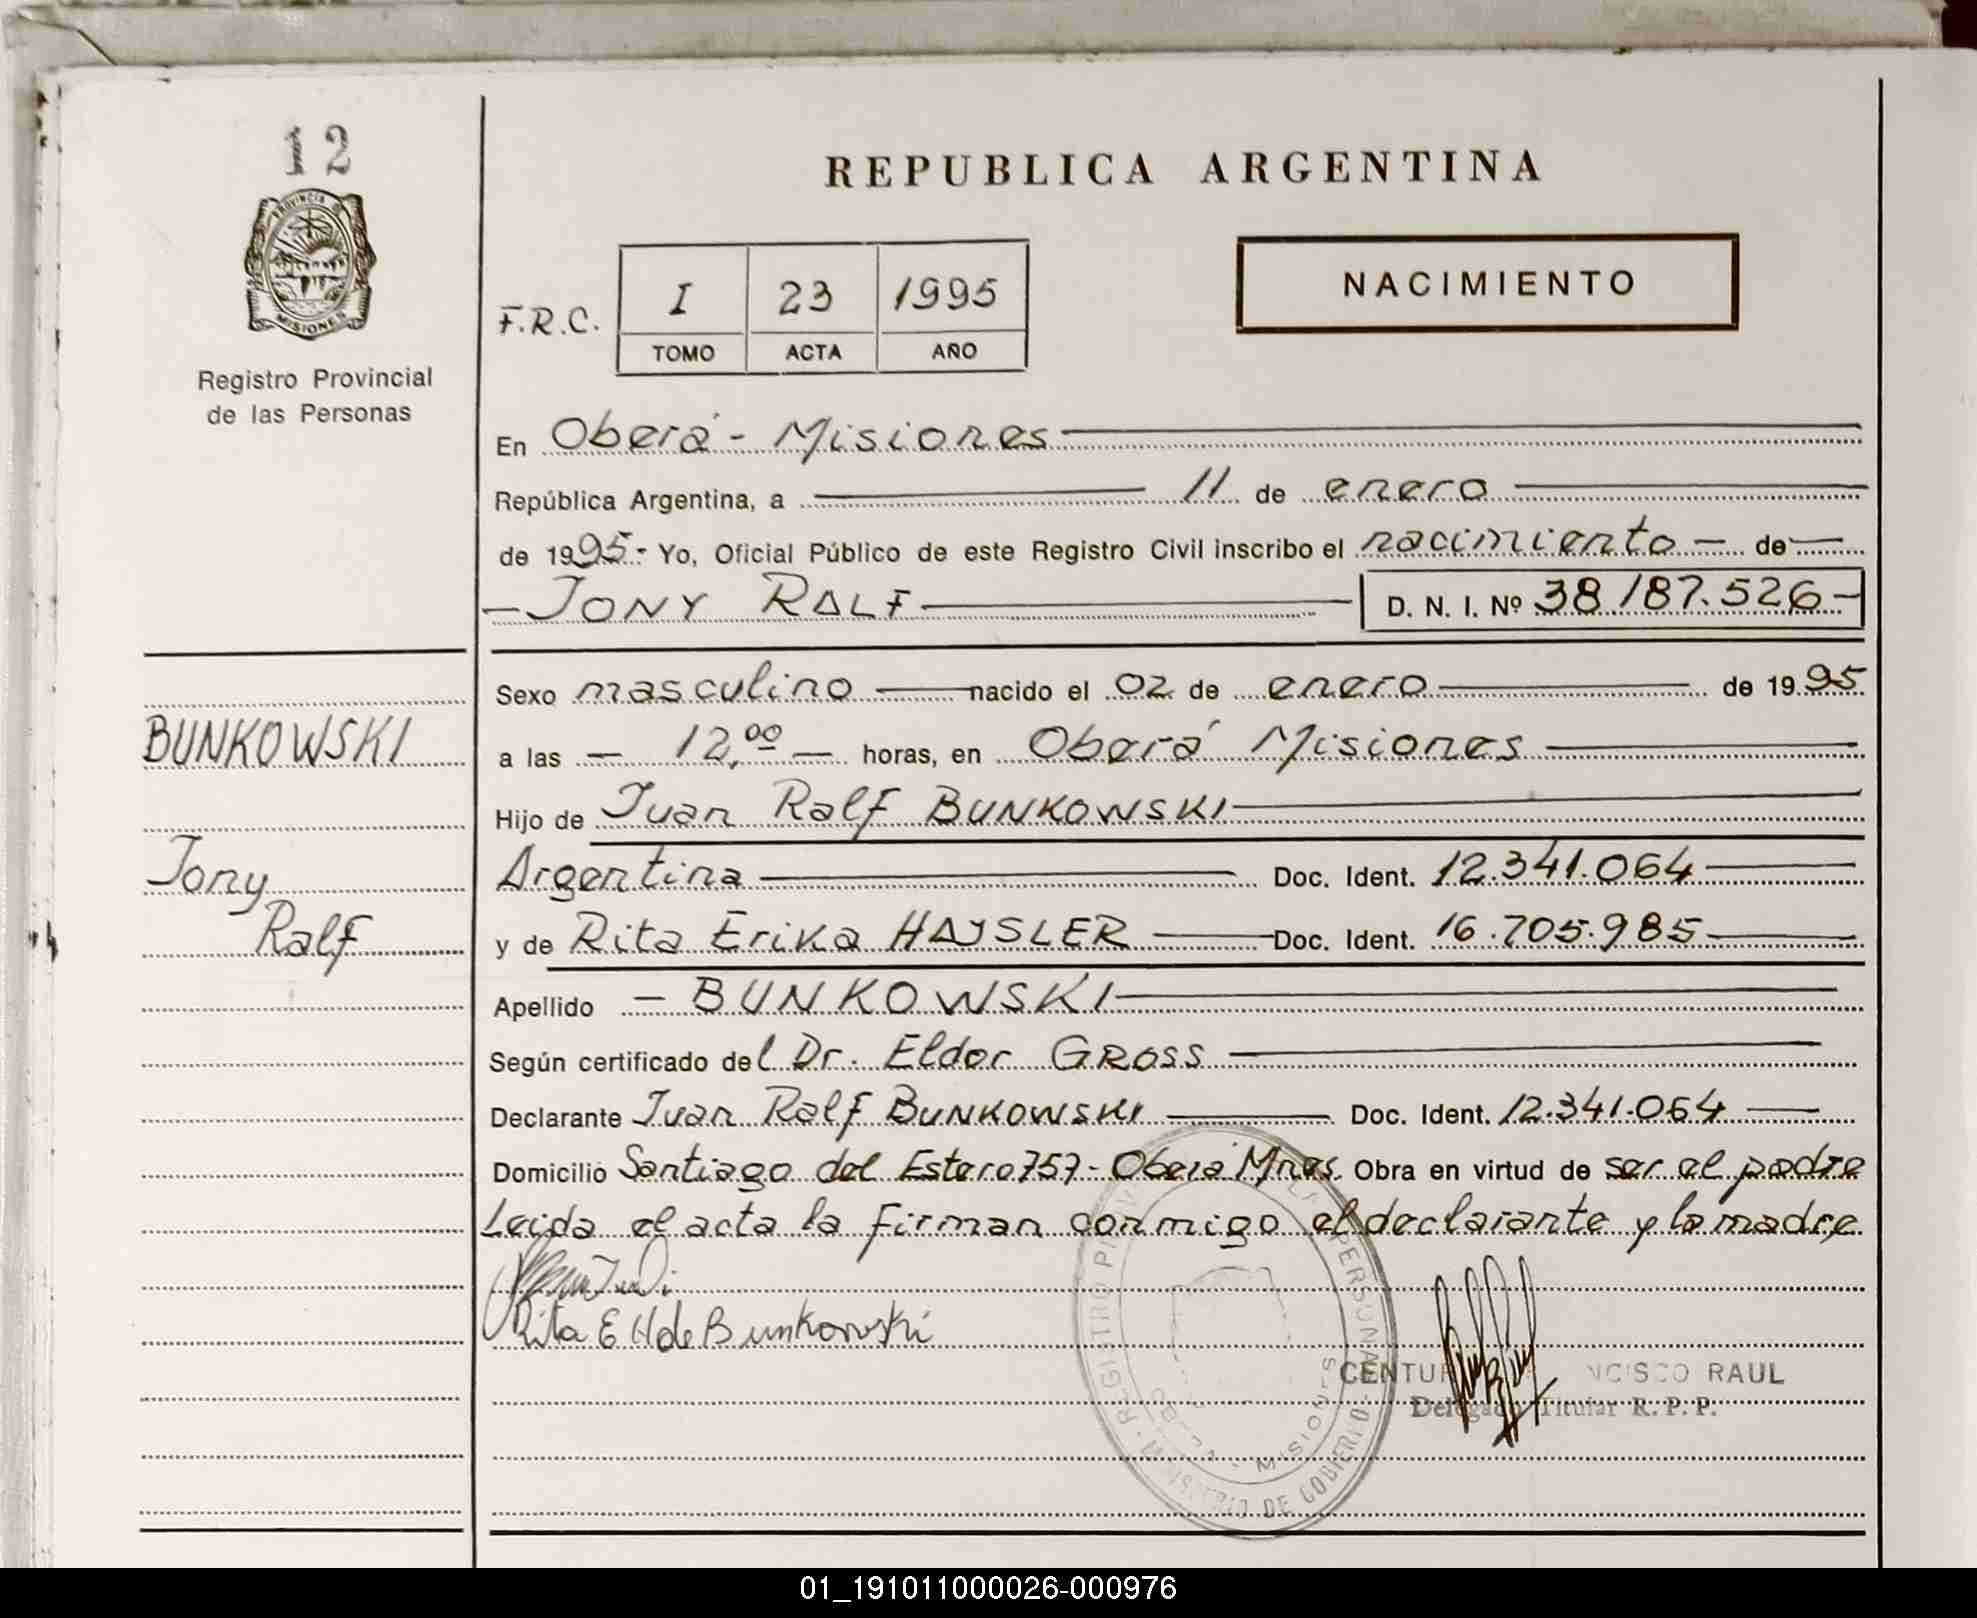 12
PROVINCIA DE
MISIONES
Registro Provincial
de las Personas
REPUBLICA ARGENTINA
F.R.C.
I 23 1995
TOMO ACTA AÑO
NACIMIENTO
En Oberá - Misiones
República Argentina, a 11 de enero
de 1995.- Yo, Oficial Público de este Registro Civil inscribo el nacimiento - de -
- JONY RALF D. N. I. Nº 38187.526 -
Sexo masculino nacido el 02 de enero de 1995
a las - 12,00 - horas, en Oberá Misiones
Hijo de Juan Ralf BUNKOWSKI
Argentina Doc. Ident. 12.341.064
y de Rita Erika HAJSLER Doc. Ident. 16.705.985
Apellido - BUNKOWSKI
Según certificado del Dr. Eldor GROSS
Declarante Juan Ralf BUNKOWSKI Doc. Ident. 12.341.064
Domicilio Santiago del Estero 757 - Oberá Mnes. Obra en virtud de ser el padre
Leida el acta la firman conmigo el declarante y la madre
Rita E H de Bunkowski
BUNKOWSKI
Jony
Ralf
REGISTRO PERSONAS
MINISTERIO DE GOBIERNO
MISIONES
RAUL
Delegado Titular R. P. P.
01_191011000026-000976